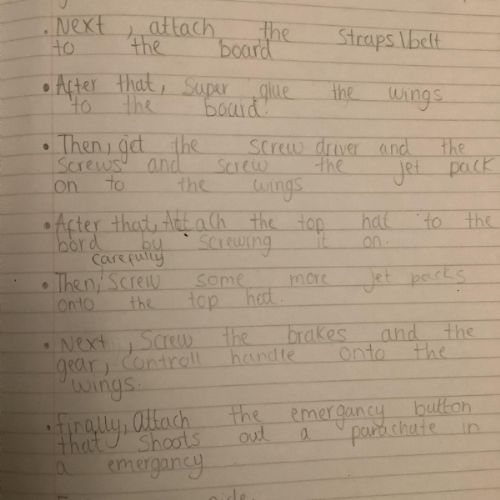 • Next, attach the straps\belt
to the board
• After that, super glue the wings
to the board.
• Then, get the screw driver and the
screws and screw the jet pack
on to the wings
• After that, Attach the top hat to the
bord by screwing it on.
carefully
• Then, screw some more jet packs
onto the top hat.
• Next, screw the brakes and the
gear, controll handle onto the
wings.
• Finally, attach the emergancy button
that shoots out a parachute in
a emergancy